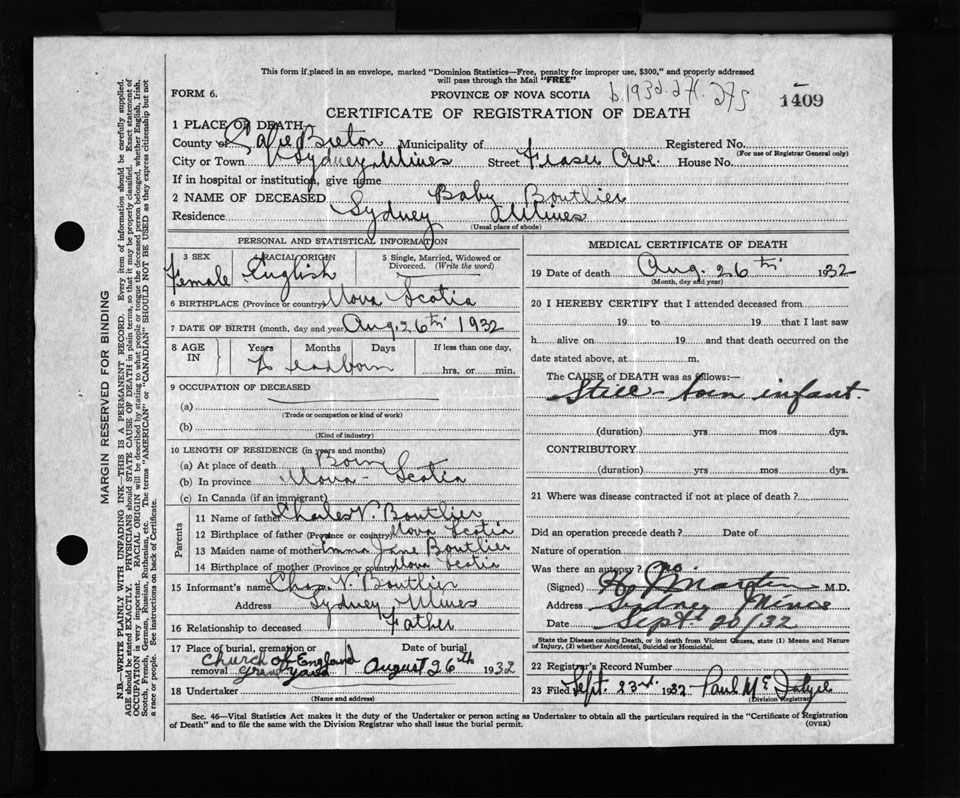 This form if placed in an envelope, marked "Dominion Statistics—Free, penalty for improper use, $300," and properly addressed
will pass through the Mail "FREE"
FORM 6.
PROVINCE OF NOVA SCOTIA
b.1932.271.275
1409
CERTIFICATE OF REGISTRATION OF DEATH
1 PLACE OF DEATH
County of Cape Breton Municipality of Registered No.
(For use of Registrar General only)
City or Town Sydney Mines Street Fraser Ave. House No.
If in hospital or institution, give name
2 NAME OF DECEASED Baby Boutlier
Residence Sydney Mines
(Usual place of abode)
PERSONAL AND STATISTICAL INFORMATION
3 SEX 4 RACIAL ORIGIN 5 Single, Married, Widowed or
Divorced. (Write the word)
Female English
6 BIRTHPLACE (Province or country) Nova Scotia
7 DATE OF BIRTH (month, day and year) Aug. 26th 1932
8 AGE IN Years Months Days If less than one day,
hrs. or min.
Deadborn
9 OCCUPATION OF DECEASED
(a)
(Trade or occupation or kind of work)
(b)
(Kind of industry)
10 LENGTH OF RESIDENCE (in years and months)
(a) At place of death Born
(b) In province Nova - Scotia
(c) In Canada (if an immigrant)
Parents
11 Name of father Charles V. Boutlier
12 Birthplace of father (Province or country) Nova Scotia
13 Maiden name of mother Emma Jane Boutlier
14 Birthplace of mother (Province or country) Nova Scotia
15 Informant's name Chas. V. Boutlier
Address Sydney Mines
16 Relationship to deceased Father
17 Place of burial, cremation or Date of burial
removal Church of England August 26th 1932
18 Undertaker
(Name and address)
MEDICAL CERTIFICATE OF DEATH
19 Date of death Aug. 26th 1932
(Month, day and year)
20 I HEREBY CERTIFY that I attended deceased from
19 to 19 that I last saw
h alive on 19 and that death occurred on the
date stated above, at m.
The CAUSE of DEATH was as follows:—
Still-born infant.
(duration) yrs mos dys.
CONTRIBUTORY
(duration) yrs mos dys.
21 Where was disease contracted if not at place of death ?
Did an operation precede death ? Date of
Nature of operation
Was there an autopsy ? No
(Signed) H. J. Martin M.D.
Address Sydney Mines
Date Sept 20/32
State the Disease causing Death, or in death from Violent Causes, state (1) Means and Nature
of Injury, (2) whether Accidental, Suicidal or Homicidal.
22 Registrar's Record Number
23 Filed Sept. 23rd. 1932 Paul Mc
(Division Registrar)
Sec. 46—Vital Statistics Act makes it the duty of the Undertaker or person acting as Undertaker to obtain all the particulars required in the "Certificate of Registration
of Death" and to file the same with the Division Registrar who shall issue the burial permit.
(OVER)
MARGIN RESERVED FOR BINDING
N.B.—WRITE PLAINLY WITH UNFADING INK—THIS IS A PERMANENT RECORD. Every item of information should be carefully supplied.
AGE should be stated EXACTLY. PHYSICIANS should STATE CAUSE OF DEATH in plain terms, so that it may be properly classified. Exact statement of
OCCUPATION is very important. RACIAL ORIGIN will be described by stating to what people or tongue the deceased person belonged, whether English, Irish,
Scotch, French, German, Russian, Ruthenian, etc. The terms "AMERICAN" or "CANADIAN" SHOULD NOT BE USED as they express citizenship but not
a race or people. See instructions on back of Certificate.